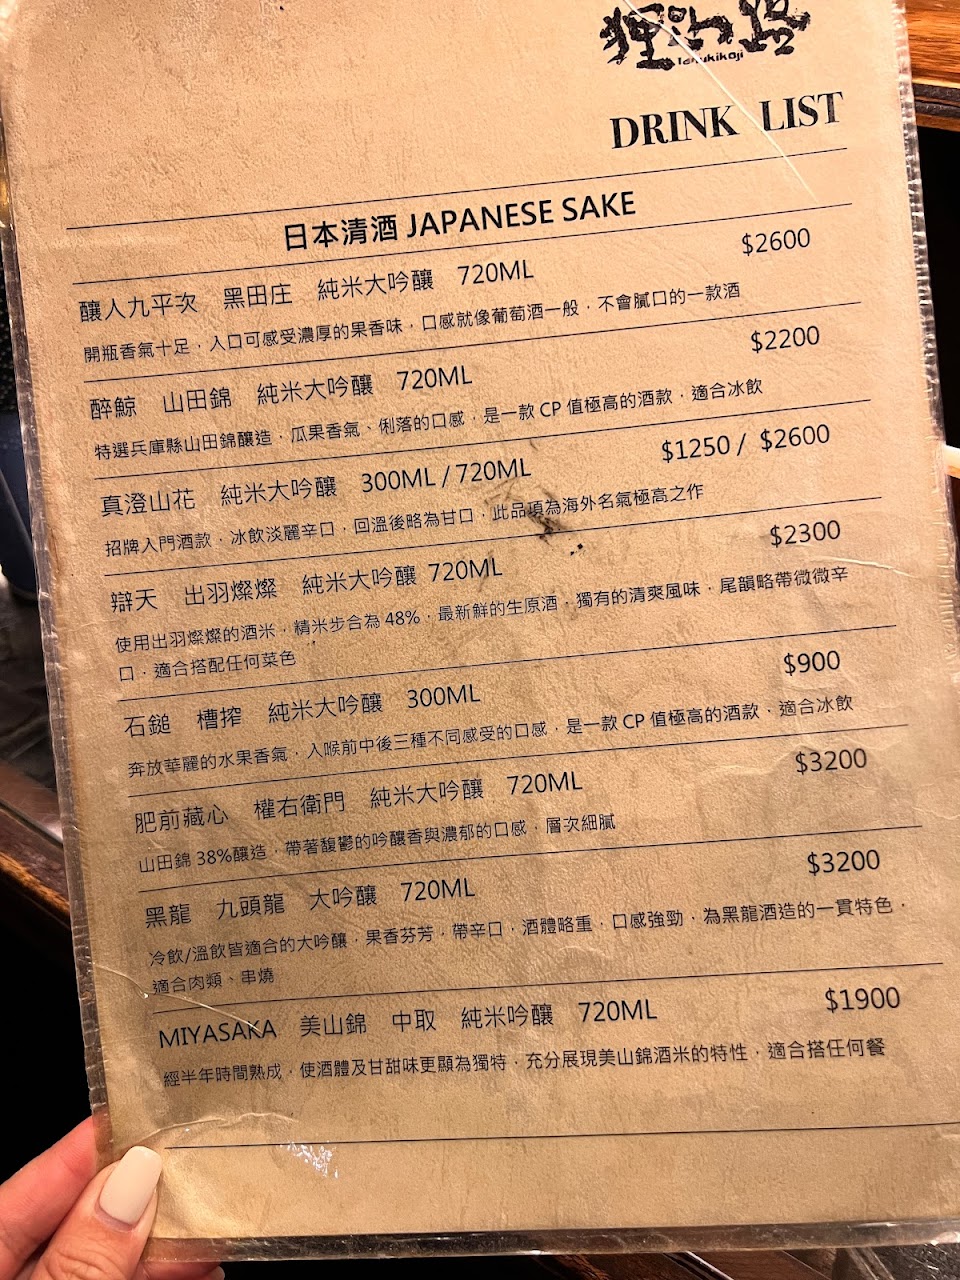 狸小路
Tanukikoji
DRINK LIST
日本清酒 JAPANESE SAKE
釀人九平次 黑田庄 純米大吟釀 720ML $2600
開瓶香氣十足，入口可感受濃厚的果香味，口感就像葡萄酒一般，不會膩口的一款酒
醉鯨 山田錦 純米大吟釀 720ML $2200
特選兵庫縣山田錦釀造，瓜果香氣、俐落的口感，是一款 CP 值極高的酒款，適合冰飲
真澄山花 純米大吟釀 300ML / 720ML $1250 / $2600
招牌入門酒款，冰飲淡麗辛口，回溫後略為甘口，此品項為海外名氣極高之作
辯天 出羽燦燦 純米大吟釀 720ML $2300
使用出羽燦燦的酒米，精米步合為 48%，最新鮮的生原酒，獨有的清爽風味，尾韻略帶微微辛
口，適合搭配任何菜色
石鎚 槽搾 純米大吟釀 300ML $900
奔放華麗的水果香氣，入喉前中後三種不同感受的口感，是一款 CP 值極高的酒款，適合冰飲
肥前藏心 權右衛門 純米大吟釀 720ML $3200
山田錦 38%釀造，帶著馥鬱的吟釀香與濃郁的口感，層次細膩
黑龍 九頭龍 大吟釀 720ML $3200
冷飲/溫飲皆適合的大吟釀，果香芬芳，帶辛口，酒體略重，口感強勁，為黑龍酒造的一貫特色，
適合肉類、串燒
MIYASAKA 美山錦 中取 純米吟釀 720ML $1900
經半年時間熟成，使酒體及甘甜味更顯為獨特，充分展現美山錦酒米的特性，適合搭任何餐